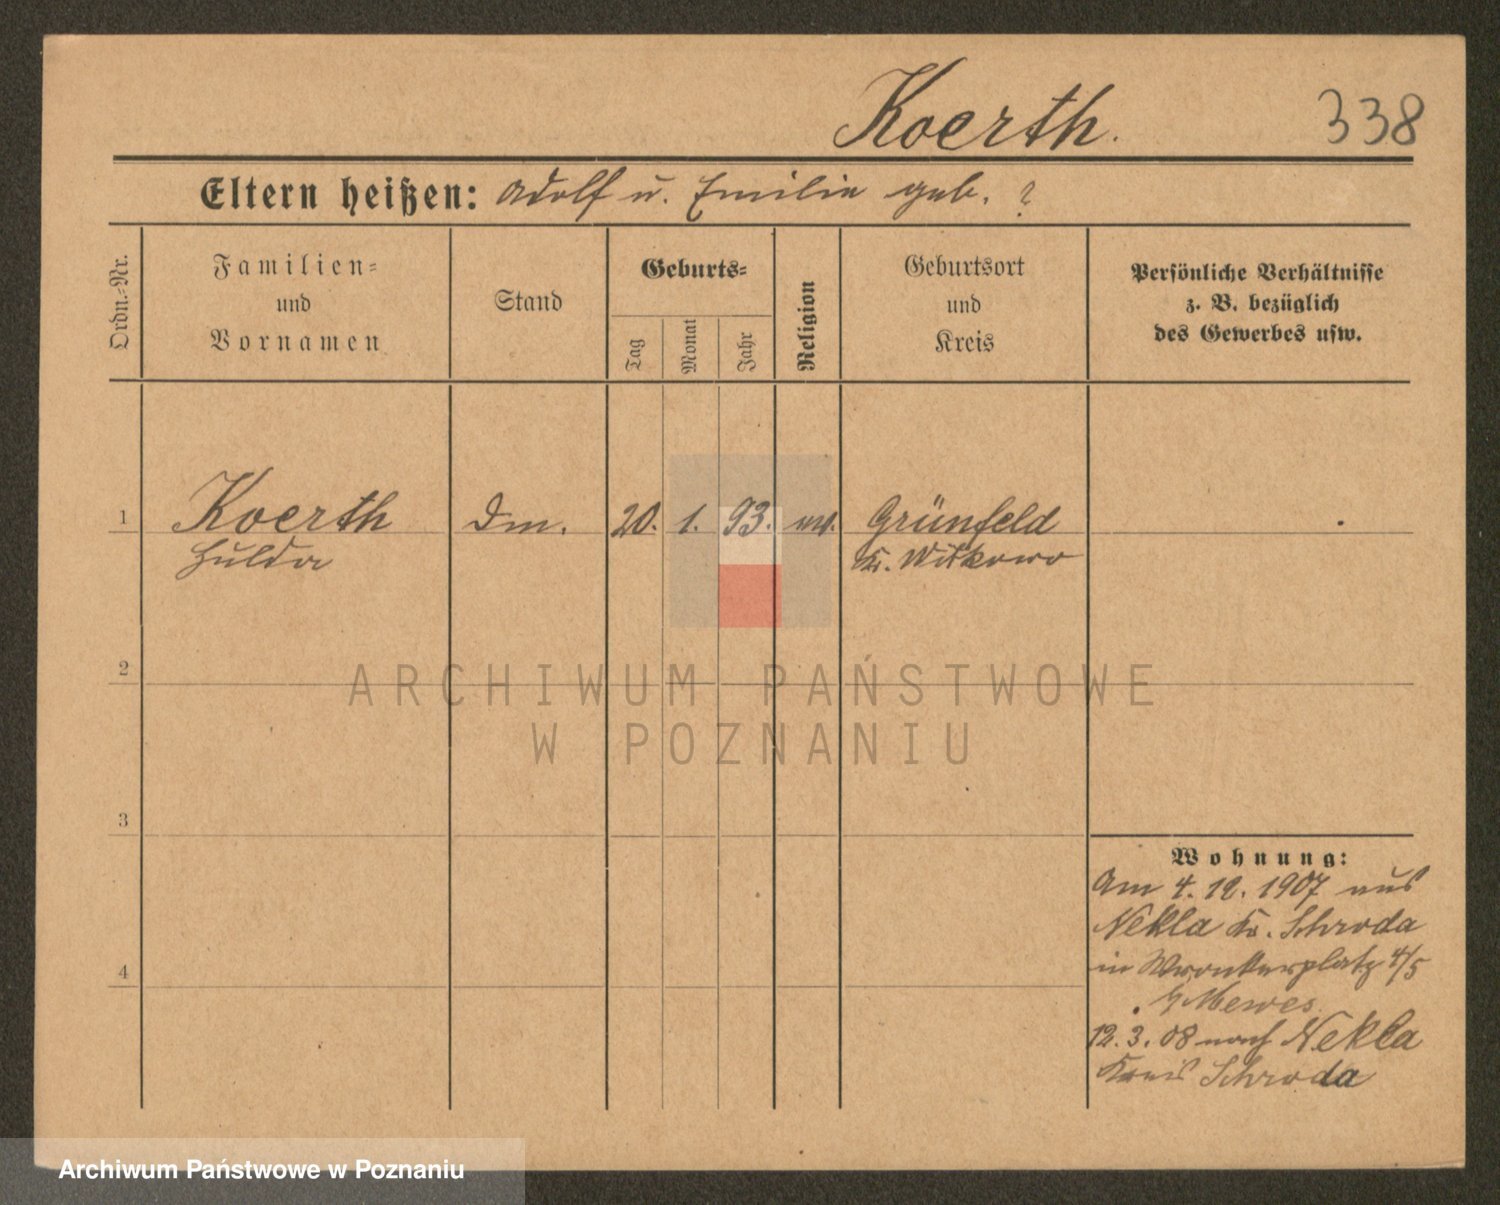 Koerth. 338
Eltern heißen: Adolf u. Emilie geb. ?
Ordn.-Nr.
Familien-
und
Vornamen
Stand
Geburts-
Tag
Monat
Jahr
Religion
Geburtsort
und
Kreis
Persönliche Verhältnisse
z. B. bezüglich
des Gewerbes usw.
1 Koerth Dm. 20. 1. 93. ev. Grünfeld
Hulda Kr. Witkowo
2
ARCHIWUM PAŃSTWOWE
W POZNANIU
3
Wohnung:
Am 4. 12. 1907 aus
Nekla Kr. Schroda
in Wronkerplatz 4/5
4
Mewes.
12. 3. 08 nach Nekla
Kreis Schroda
Archiwum Państwowe w Poznaniu